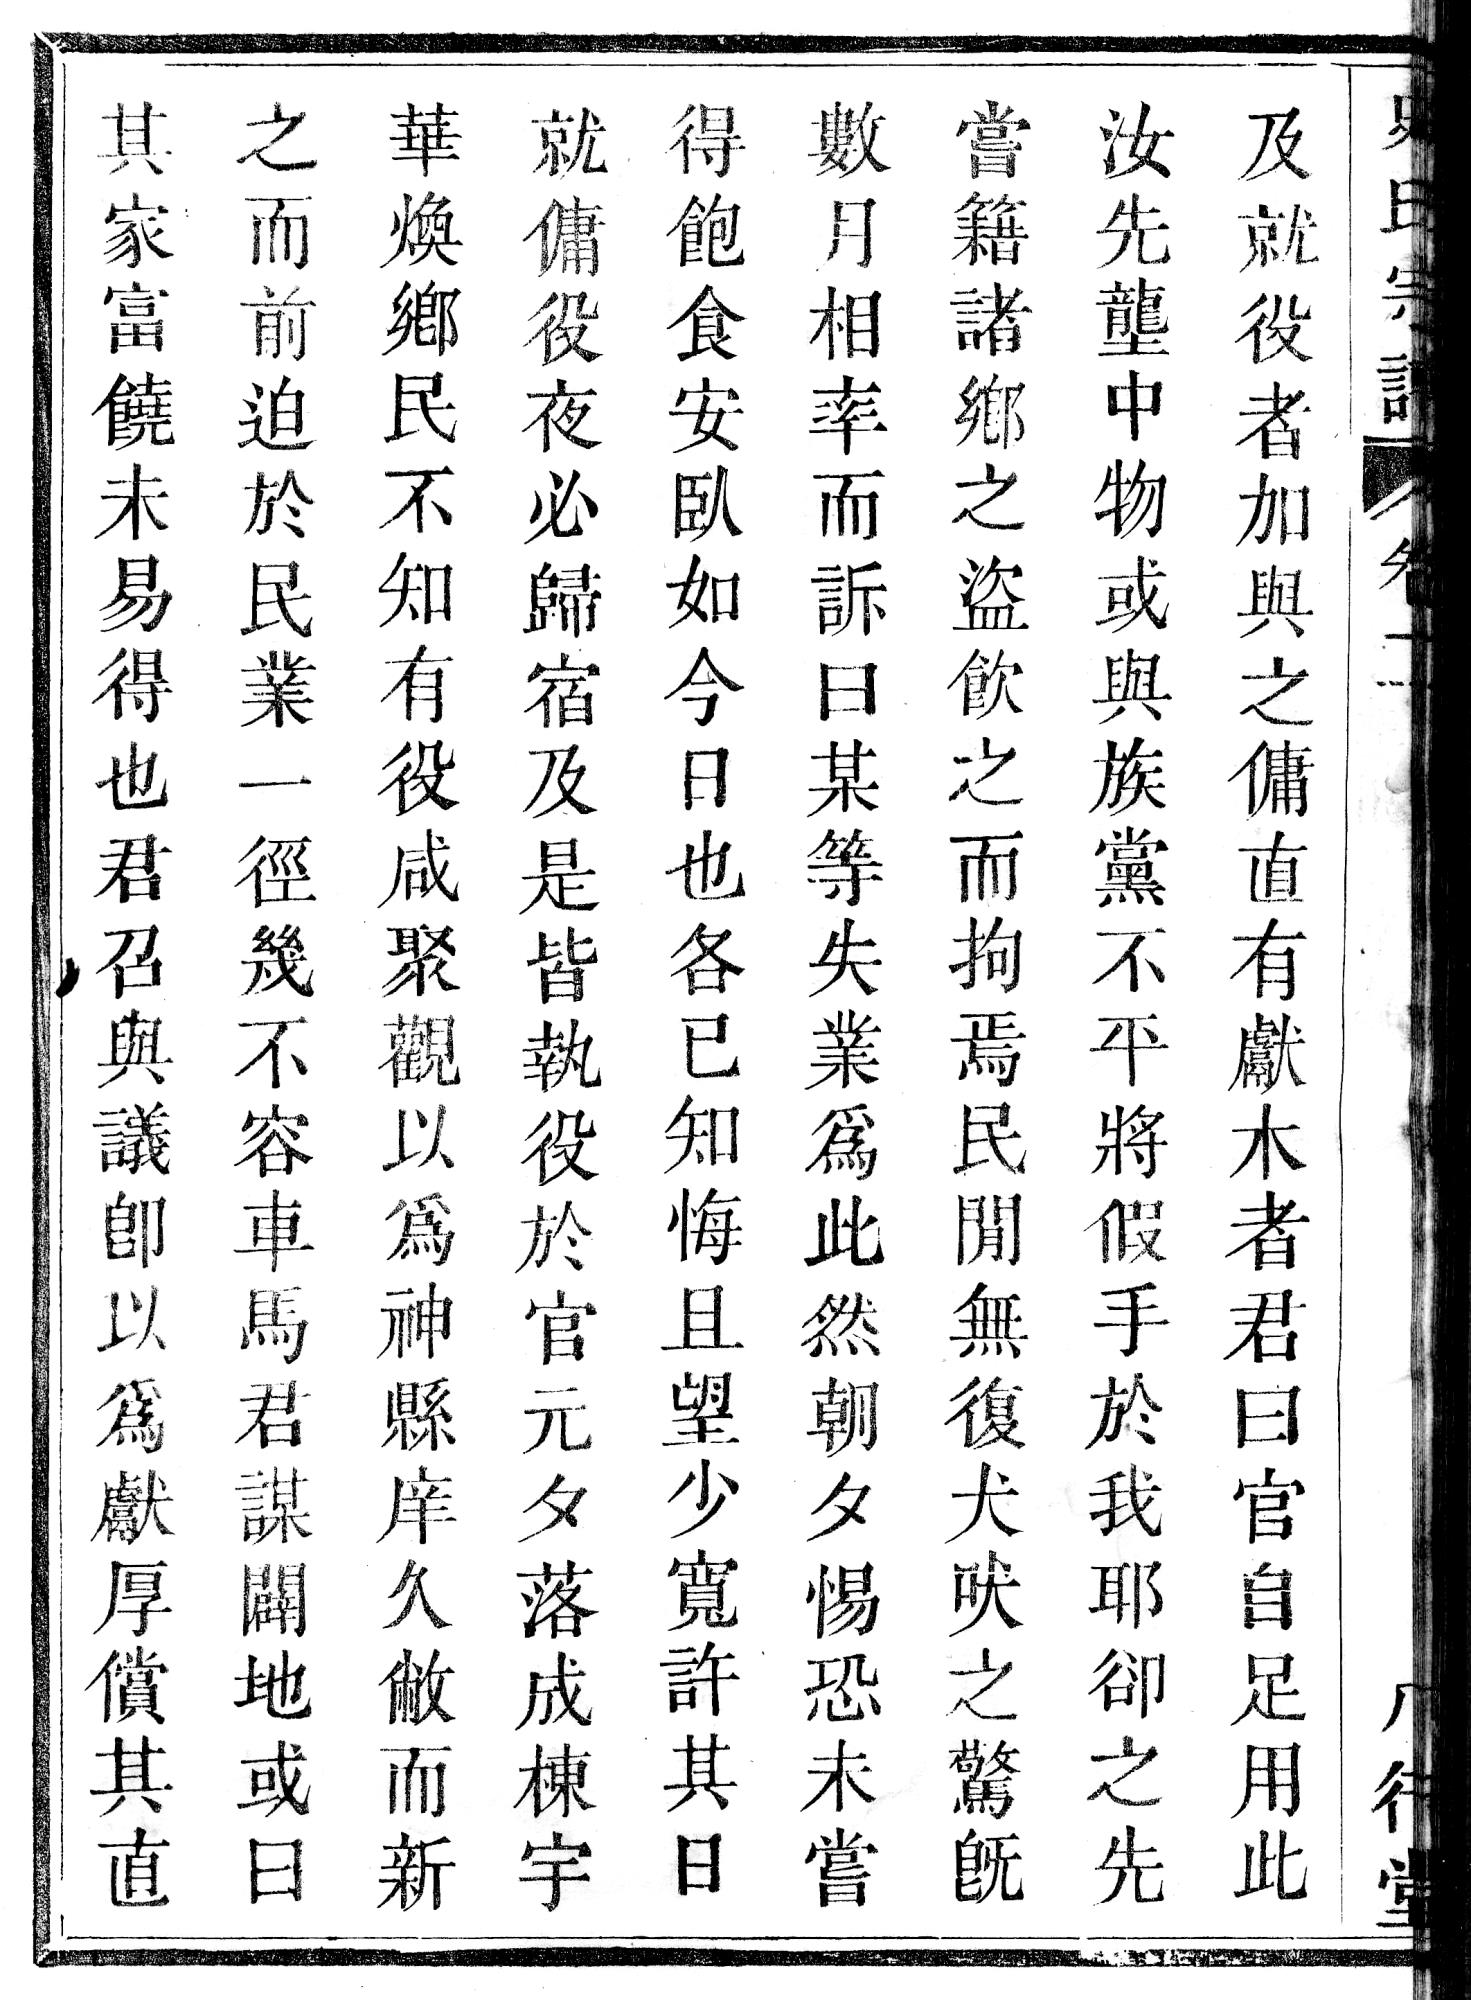 及就役者加與之傭直有獻木者君曰官自足用此
汝先壟中物或與族黨不平將假手於我耶卻之先
嘗籍諸鄉之盜飲之而拘焉民閒無復犬吠之驚旣
數月相率而訴曰某等失業爲此然朝夕惕恐未嘗
得飽食安臥如今日也各已知悔且望少寬許其日
就傭役夜必歸宿及是皆執役於官元夕落成棟宇
華煥鄉民不知有役咸聚觀以爲神縣庠久敝而新
之而前迫於民業一徑幾不容車馬君謀闢地或曰
其家富饒未易得也君召與議卽以爲獻厚償其直